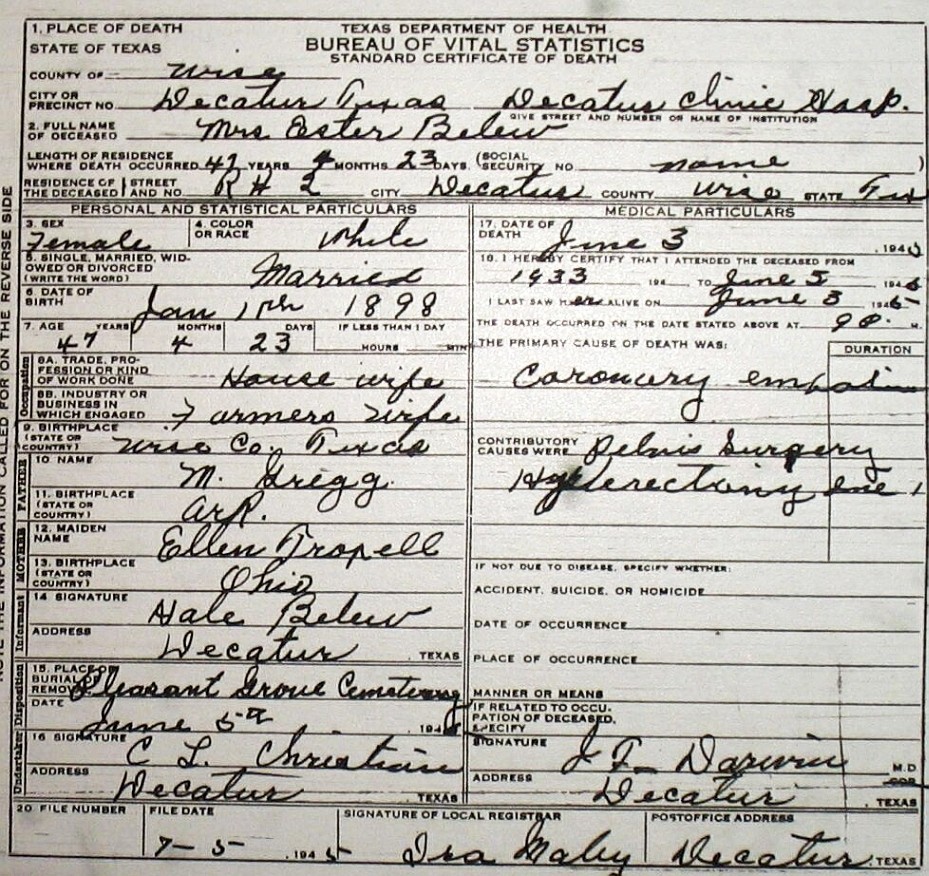 1. PLACE OF DEATH
STATE OF TEXAS
TEXAS DEPARTMENT OF HEALTH
BUREAU OF VITAL STATISTICS
STANDARD CERTIFICATE OF DEATH
COUNTY OF Wise
CITY OR PRECINCT NO. Decatur Texas Decatur Clinic Hosp.
GIVE STREET AND NUMBER OR NAME OF INSTITUTION
2. FULL NAME OF DECEASED Mrs. Ester Belew
LENGTH OF RESIDENCE WHERE DEATH OCCURRED 47 YEARS 4 MONTHS 23 DAYS (SOCIAL SECURITY NO none )
RESIDENCE OF THE DECEASED STREET AND NO. R # 2 CITY Decatur COUNTY Wise STATE Tex
PERSONAL AND STATISTICAL PARTICULARS
3. SEX Female
4. COLOR OR RACE White
5. SINGLE, MARRIED, WIDOWED OR DIVORCED (WRITE THE WORD) Married
6. DATE OF BIRTH Jan 1898
7. AGE YEARS 47 MONTHS 4 DAYS 23 IF LESS THAN 1 DAY HOURS MIN
Occupation
8A. TRADE, PROFESSION OR KIND OF WORK DONE House wife
8B. INDUSTRY OR BUSINESS IN WHICH ENGAGED Farmers Wife
9. BIRTHPLACE (STATE OR COUNTRY) Wise Co. Texas
FATHER
10. NAME M. Gregg
11. BIRTHPLACE (STATE OR COUNTRY) Ark.
MOTHER
12. MAIDEN NAME Ellen
13. BIRTHPLACE (STATE OR COUNTRY) Ohio
Informant
14 SIGNATURE Hale Belew
ADDRESS Decatur TEXAS
Disposition
15. PLACE OF BURIAL REMOVAL Pleasant Grove Cemetery
DATE June 5th 194
Undertaker
16 SIGNATURE C L Christian
ADDRESS Decatur TEXAS
MEDICAL PARTICULARS
17. DATE OF DEATH June 3 , 194
I HEREBY CERTIFY THAT I ATTENDED THE DECEASED FROM
1933 194 , TO June 194
I LAST SAW HER ALIVE ON June 3 1945
THE DEATH OCCURRED ON THE DATE STATED ABOVE AT M.
THE PRIMARY CAUSE OF DEATH WAS: DURATION
Coronary
CONTRIBUTORY CAUSES WERE Pelvis Surgery
IF NOT DUE TO DISEASE, SPECIFY WHETHER:
ACCIDENT, SUICIDE, OR HOMICIDE
DATE OF OCCURRENCE
PLACE OF OCCURRENCE
MANNER OR MEANS
IF RELATED TO OCCUPATION OF DECEASED, SPECIFY
SIGNATURE J F Darwin M.D
ADDRESS Decatur , TEXAS
20. FILE NUMBER
FILE DATE 7-5- , 1945
SIGNATURE OF LOCAL REGISTRAR Ira Maley
POSTOFFICE ADDRESS Decatur, TEXAS
THE INFORMATION CALLED FOR ON THE REVERSE SIDE